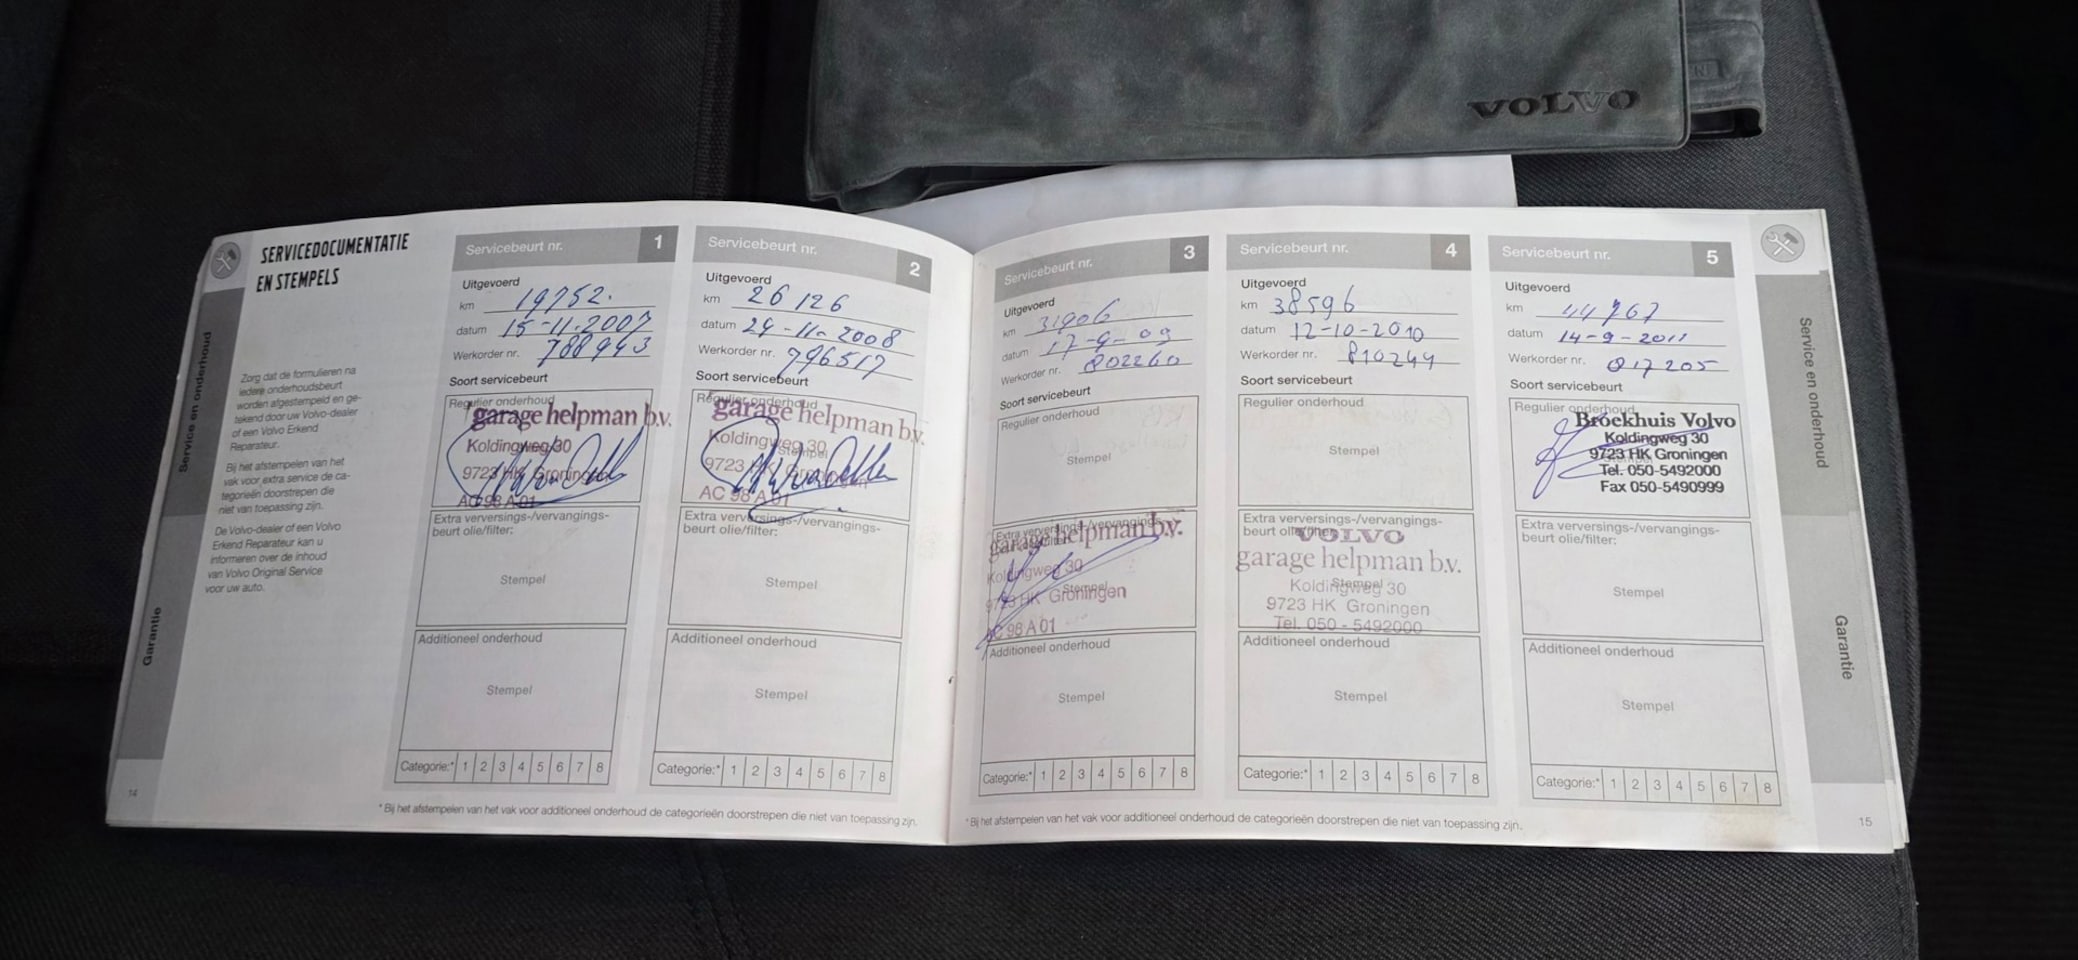 VOLVO
SERVICEDOCUMENTATIE
EN STEMPELS
Service en onderhoud
Garantie
Zorg dat de formulieren na
iedere onderhoudsbeurt
worden afgestempeld en ge-
tekend door uw Volvo-dealer
of een Volvo Erkend
Reparateur.
Bij het afstempelen van het
vak voor extra service de ca-
tegorieën doorstrepen die
niet van toepassing zijn.
De Volvo-dealer of een Volvo
Erkend Reparateur kan u
informeren over de inhoud
van Volvo Original Service
voor uw auto.
14
Servicebeurt nr. 1
Uitgevoerd
km 19752.
datum 15-11-2007
Werkorder nr. 788943
Soort servicebeurt
Regulier onderhoud
garage helpman b.v.
Koldingweg 30
9723 HK Groningen
AC 98 A 01
Extra verversings-/vervangings-
beurt olie/filter:
Stempel
Additioneel onderhoud
Stempel
Categorie:* 1 2 3 4 5 6 7 8
Servicebeurt nr. 2
Uitgevoerd
km 26126
datum 24-11-2008
Werkorder nr. 796517
Soort servicebeurt
Regulier onderhoud
garage helpman b.v.
Koldingweg 30
Stempel
9723 HK Groningen
AC 98 A 01
Extra verversings-/vervangings-
beurt olie/filter:
Stempel
Additioneel onderhoud
Stempel
Categorie:* 1 2 3 4 5 6 7 8
* Bij het afstempelen van het vak voor additioneel onderhoud de categorieën doorstrepen die niet van toepassing zijn.
Servicebeurt nr. 3
Uitgevoerd
km 31906
datum 17-9-09
Werkorder nr. 802260
Soort servicebeurt
Regulier onderhoud
Stempel
Extra verversings-/vervangings-
garage helpman b.v.
Koldingweg 30
Stempel
9723 HK Groningen
AC 98 A 01
Additioneel onderhoud
Stempel
Categorie:* 1 2 3 4 5 6 7 8
Servicebeurt nr. 4
Uitgevoerd
km 38596
datum 12-10-2010
Werkorder nr. 810244
Soort servicebeurt
Regulier onderhoud
Stempel
Extra verversings-/vervangings-
beurt olie/filter:
VOLVO
garage helpman b.v.
Stempel
Koldingweg 30
9723 HK Groningen
Tel. 050 - 5492000
Additioneel onderhoud
Stempel
Categorie:* 1 2 3 4 5 6 7 8
Servicebeurt nr. 5
Uitgevoerd
km 44767
datum 14-9-2011
Werkorder nr. 817205
Soort servicebeurt
Regulier onderhoud
Broekhuis Volvo
Koldingweg 30
9723 HK Groningen
Tel. 050-5492000
Fax 050-5490999
Extra verversings-/vervangings-
beurt olie/filter:
Stempel
Additioneel onderhoud
Stempel
Categorie:* 1 2 3 4 5 6 7 8
* Bij het afstempelen van het vak voor additioneel onderhoud de categorieën doorstrepen die niet van toepassing zijn.
Service en onderhoud
Garantie
15